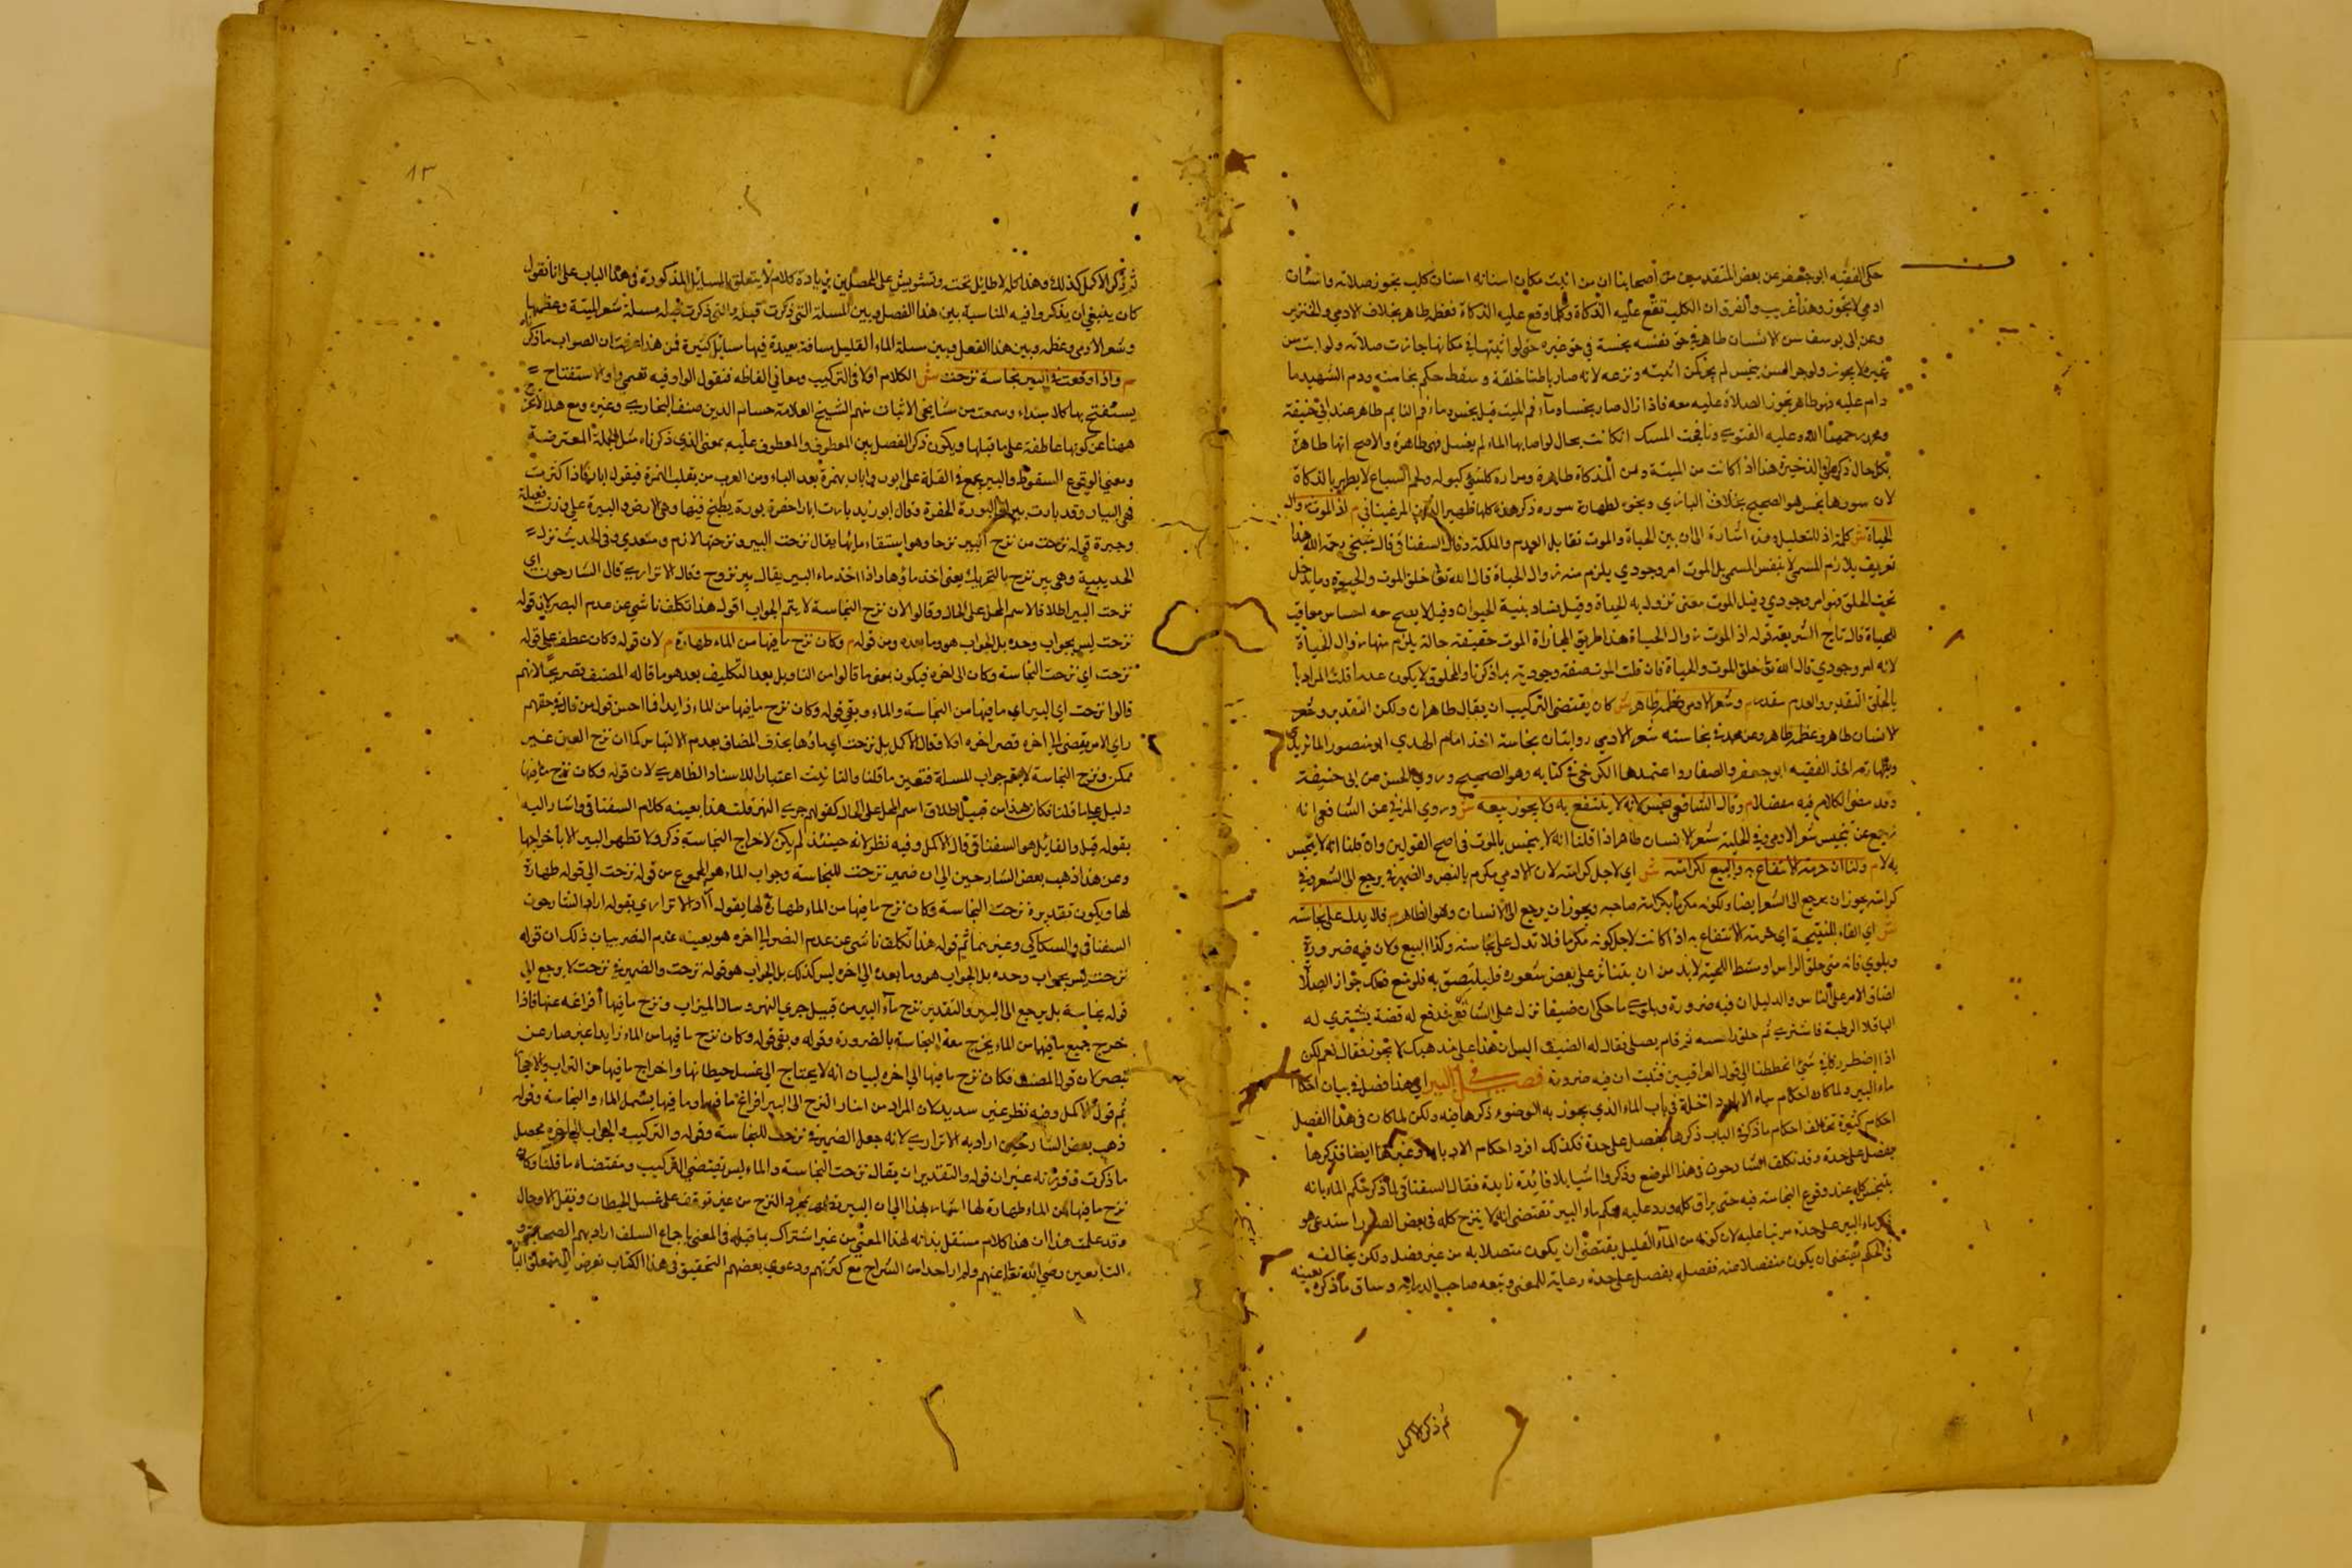 حكى الفقيه ابو جعفر عن بعض المتقدمين من اصحابنا ان من اثبت مكان اسنانه اسنان كلب يجوز صلاته واسنان
ادمي لا يجوز وهذا غريب والفرق ان الكلب تقع عليه الذكاة وكلما وقع عليه الذكاة فعظمه طاهر بخلاف الادمي والخنزير
وعن ابي يوسف سن الانسان طاهر في حق نفسه نجسة في حق غيره حتى لو اثبتها في مكانها جازت صلاته ولو اثبت سن
غيره لا يجوز
دام عليه فهو طاهر يجوز الصلاة عليه معه فاذا زال صار نجسا وماء فم الميت قيل نجس وماء فم النايم طاهر عند ابي حنيفة
ومحمد رحمهما الله وعليه الفتوى ونافجة المسك ان كانت بحال لو اصابها الماء لم يفسد فهي طاهرة والاصح انها طاهرة
بكل حال ذكره في الذخيرة هذا اذا كانت من الميتة ومن المذكاة طاهرة ومرارة كل شيء كبوله ولحم السباع لا يطهر بالذكاة
لان سورها نجس هو الصحيح بخلاف البازي ونحوه لطهارة سوره ذكر هذه كلها ظهير الدين المرغيناني م اذ الموت زوال
الحياة ش كلمة اذ للتعليل وهذه اشارة الى ان بين الحياة والموت تقابل العدم والملكة وقال السغناقي قال شيخي رحمه الله هذا
تعريف بلازم المسمى لا بنفس المسمى بل الموت امر وجودي يلزم منه زوال الحياة قال الله تعالى خلق الموت والحيوة وما يدخل
تحت الخلق فهو امر وجودي وقيل الموت معنى تزول به الحياة وقيل فساد بنية الحيوان وقيل لا يصح معه احساس معاقب
للحياة قال تاج الشريعة قوله اذ الموت زوال الحياة هذا طريق المجازاة الموت حقيقة حالة يلزم منها زوال الحياة
لانه امر وجودي قال الله تعالى خلق الموت والحياة فان قلت الموت صفة وجودية بما ذكرنا والمخلوق لا يكون عدما قلت المراد
بالخلق التقدير والعدم مقدر م وشعر الادمي وعظمه طاهر ش كان يقتضي التركيب ان يقال طاهران ولكن التقدير وشعر
الانسان طاهر وعظمه طاهر وعن محمد في نجاسة شعر الادمي روايتان بنجاسته اخذ امام الهدى ابو منصور الماتريدي
وبطهارته اخذ الفقيه ابو جعفر والصفار واعتمدها الكرخي في كتابه وهو الصحيح وروى الحسن عن ابي حنيفة
وقد مضى الكلام فيه مفصلا م وقال الشافعي نجس لانه لا ينتفع به ولا يجوز بيعه ش وروى المزني عن الشافعي انه
رجع عن تنجيس شعر الادمي وفي الحلية شعر الانسان طاهر اذا قلنا انه لا ينجس بالموت في اصح القولين وان قلنا انه لا ينجس
به لا م ولنا ان حرمة الانتفاع به والبيع لكرامته ش اي لاجل كرامته لان الادمي مكرم بالنص والضمير في يرجع الى الشعر وفي
كرامته يجوز ان يرجع الى الشعر ايضا ولكونه مكرما بكرامة صاحبه ويجوز ان يرجع الى الانسان وهو الظاهر م فلا يدل على نجاسته
ش اي الفاء للنتيجة اي حرمة الانتفاع به اذا كانت لاجل كونه مكرما فلا تدل على نجاسته وكذا البيع ولان فيه ضرورة
وبلوى فانه متى حلق الراس او مشط اللحية لا بد من ان يتناثر على بعض شعوره فليلتصق به فلو منع فيه جواز الصلاة
لضاق الامر على الناس والدليل ان فيه ضرورة وبلوى ما حكي ان ضيفا نزل على الشافعي فدفع له فضة يشتري له
الباقلا الرطبة فاشترى ثم حلق راسه ثم قام يصلي فقال له الضيف اليس ان هذا على مذهبك لا يجوز فقال نعم لكن
اذا اضطررنا في شيء انحططنا الى قول العراقيين فثبت ان فيه ضرورة فصل في البير اي هذا فصل في بيان احكام
ماء البير ولما كان احكام مياه الابار داخلة في باب الماء الذي يجوز به الوضوء ذكرها فيه ولكن لما كان في هذا الفصل
احكام كثيرة تخالف احكام ما ذكر في الباب ذكرها بفصل على حدة فكذلك افرد احكام الاسار وغيرها ايضا فذكرها
بفصل على حدة وقد تكلف الشارحون في هذا الموضع وذكروا اشيا بلا فائدة زايدة فقال السغناقي لما ذكر حكم الماء بانه
يتنجس كله عند وقوع النجاسة فيه حتى يراق كله ورد عليه حكم ماء البير نقضا انه لا ينزح كله في بعض الصور استدعى هو
ذكر ماء البير على حدة مرتبا عليه لان كونه من الماء القليل يقتضي ان يكون متصلا به من غير فصل ولكن يخالفه
في الحكم يقتضي ان يكون منفصلا عنه ففصله بفصل على حدة رعاية للمعنى وتبعه صاحب الدراية وساق ما ذكره بعينه
ثم ذكر الاكمل
١٣
ثم ذكر الاكمل كذلك وهذا كله لا طايل تحته وتشويش على المحصلين بزيادة كلام لا يتعلق بالمسايل المذكورة في هذا الباب على انا نقول
كان ينبغي ان يذكروا فيه المناسبة بين هذا الفصل وبين المسلة التي ذكرت قبله والتي ذكرت قبله مسلة شعر الميتة وعظمها
وشعر الادمي وعظمه وبين هذا الفصل وبين مسلة الماء القليل مسافة بعيدة فيها مسايل كثيرة فمن هذا عرفت ان الصواب ما ذكرنا
م واذا وقعت في البير نجاسة نزحت ش الكلام اولا في التركيب ومعاني الفاظه فنقول الواو فيه تسمى واو الاستفتاح
يستفتح بها كلام ابتداء وسمعت من مشايخي الاثبات منهم الشيخ العلامة حسام الدين مصنف البخاري وغيره ومع هذا لا تخرج
ههنا عن كونها عاطفة على ما قبلها ويكون ذكر الفصل بين المعطوف والمعطوف عليه بمعنى الذي ذكرناه مثل الجملة المعترضة
ومعنى الوقوع السقوط والبير يجمع في القلة على ابور وابار بهمزة بعد الباء ومن العرب من يقلب الهمزة فيقول ابار فاذا كثرت
فهي البيار وقد بارت بيرا والبورة الحفرة وقال ابو زيد بارت ابار احفرة بورة يطبخ فيها وهي الارض والبيرة على وزن فعيلة
وجيرة قوله نزحت من نزح البير نزحا وهو استقاء مايها يقال نزحت البير ونزحتها لازم ومتعدي وفي الحديث نزل
الحديبية وهي بير نزح بالتحريك يعني اخذ ماؤها واذا اخذ ماء البير يقال بير نزوح وقال الاترازي قال الشارحون اي
نزحت البير اطلاقا لاسم المحل على الحال وقالوا لان نزح النجاسة لا يتم الجواب اقول هذا تكلف ناشي عن عدم البصر لان قوله
نزحت ليس بجواب وحده بل الجواب هو وما بعده ومن قوله م وكان نزح ما فيها من الماء طهارة م لان قوله وكان عطف على قوله
نزحت اي نزحت النجاسة وكان الى اخره فيكون بعض ما قالوا من التاويل بعد التكليف بعد هو ما قاله المصنف تصريحا لانهم
قالوا نزحت اي البير اي ما فيها من النجاسة والماء وبقي قوله وكان نزح ما فيها من الماء زايدا فما احسن قول من قال في حقهم
راي الامر يفضي الى اخره فصير اخره اولا وقال الاكمل بل نزحت اي ماؤها بحذف المضاف بعدم الالتباس كما ان نزح العين غير
ممكن ونزح النجاسة لا يتم جواب المسلة فتعين ما قلنا والتانيث اعتبار اللاسناد الظاهري لان قوله وكان نزح ما فيها
دليل على ما قلنا فكان هذا من قبيل اطلاق اسم المحل على الحال كقولهم جرى النهر قلت هذا بعينه كلام السغناقي واشار اليه
بقوله قيل والقائل هو السغناقي قال الاكمل وفيه نظر لانه حينئذ لم يكن لاخراج النجاسة ذكر ولا تطهر البير الا باخراجها
وعن هذا ذهب بعض الشارحين الى ان ضمير نزحت للنجاسة وجواب الماء هو المجموع من قوله نزحت الى قوله طهارة
لها ويكون تقديره نزحت النجاسة وكان نزح ما فيها من الماء طهارة لها بقوله اراد الاترازي بقوله اراد الشارحون
السغناقي والسكاكي وغيرهما ثم قوله هذا تكلف ناشي عن عدم البصر الى اخره هو بعينه عدم البصر بيان ذلك ان قوله
نزحت ليس بجواب وحده بل الجواب هو وما بعده الى اخره ليس كذلك بل الجواب هو قوله نزحت والضمير في نزحت لا يرجع الى
قوله نجاسة بل يرجع الى البير والتقدير نزح ماء البير من قبيل جري النهر وسال الميزاب ونزح ما فيها افراغه عنها فاذا
خرج جميع ما فيها من الماء يخرج معه النجاسة بالضرورة وقوله وبقي قوله وكان نزح ما فيها من الماء زايدا غير صار عن
تبصر لان قول المصنف فكان نزح ما فيها الى اخره لبيان انه لا يحتاج الى غسل حيطانها واخراج ما فيها من التراب والاحجار
ثم قول الاكمل وفيه نظر غير سديد لان المراد من اسناد النزح الى البير افراغ ما فيها وما فيها يشمل الماء والنجاسة وقوله
ذهب بعض الشارحين اراد به الاترازي لانه جعل الضمير في نزحت للنجاسة وقوله والتركيب والجواب الى اخره محصل
ما ذكرت
نزح ما فيها من الماء طهارة لها اشار بهذا الى ان البير تطهر بمجرد النزح من غير توقف على غسل الحيطان ونقل الاوحال
وقد علمت هذا ان هذا كلام مستقل بذاته لهذا المعنى من غير اشتراك بما قبله والمعنى باجماع السلف اراد بهم الصحابة و
التابعين رضي الله تعالى عنهم ولم ار احدا من الشراح مع كثرتهم ودعوى بعضهم التحقيق في هذا الكتاب تعرض الى متعلق البا